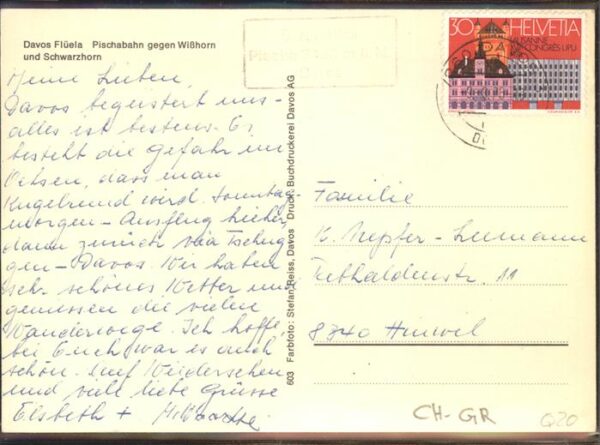 Davos Flüela Pischabahn gegen Wißhorn
und Schwarzhorn
30 HELVETIA
LAUSANNE
CONGRÈS UPU
Meine Lieben,
Davos begeistert uns -
alles ist bestens. Es
besteht die Gefahr im
Ochsen, dass man
Kugelrund wird. Sonntag-
morgen - Ausflug hieher
dann zurück via Tschug-
gen - Davos. Wir haben
sehr schönes Wetter und
geniessen die vielen
Wanderwege. Ich hoffe,
bei Euch war es auch
schön. Auf Wiedersehen
und viele liebe Grüsse
Elsbeth +
603 Farbfoto: Stefan Reiss, Davos Druck: Buchdruckerei Davos AG
Familie
K. Nepfer-Lumann
11
8340 Hinwil
CH-GR
Q20